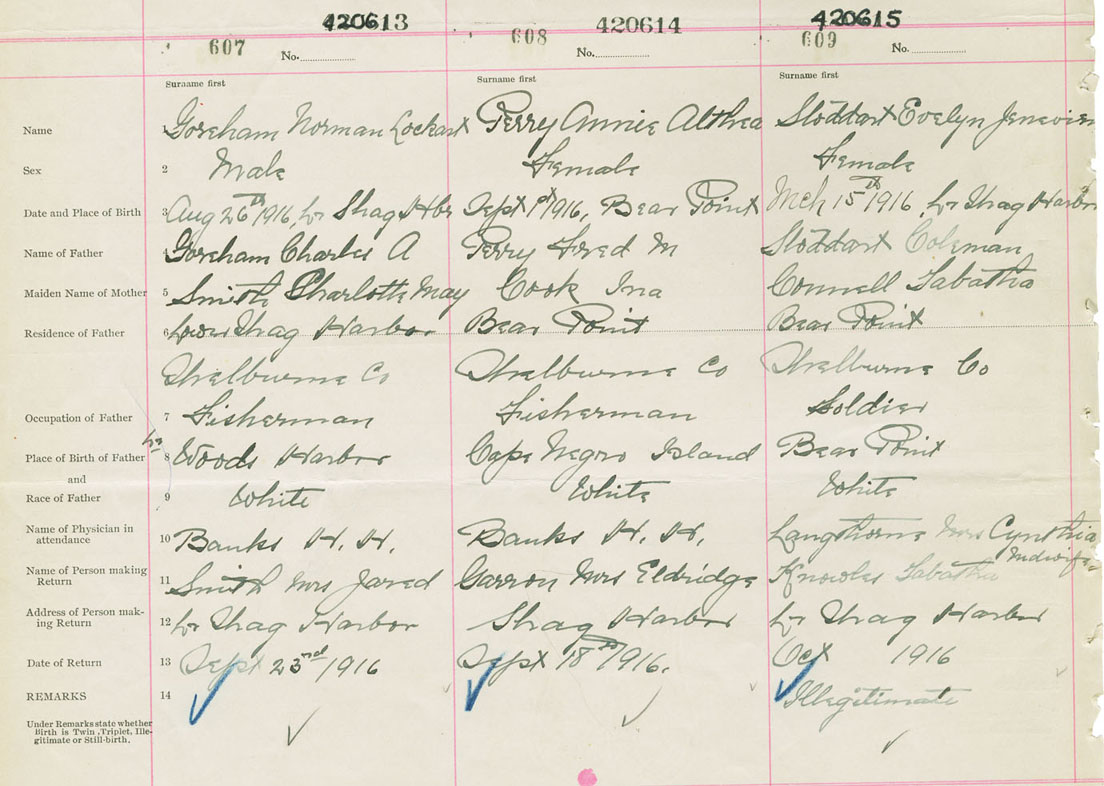 420613 420614 420615
607 608 609
No. No. No.
Surname first Surname first Surname first
Name Goreham Norman Lockart Perry Annie Althea Stoddart Evelyn
Sex 2 Male Female Female
Date and Place of Birth 3 Aug 26th 1916, Lr Shag Hbr Sept 1st 1916, Bear Point Mch 15th 1916, Lr Shag Harbor
Name of Father Goreham Charles A Perry Fred M Stoddart Coleman
Maiden Name of Mother 5 Smith Charlotte May Cook Ina Connell Tabatha
Residence of Father 6 Lower Shag Harbor Bear Point Bear Point
Shelburne Co Shelburne Co Shelburne Co
Occupation of Father 7 Fisherman Fisherman Soldier
Lr
Place of Birth of Father 8 Woods Harbor Cape Negro Island Bear Point
and
Race of Father 9 White White White
Name of Physician in
attendance 10 Banks H. H. Banks H. H. Langthorne Mrs Cynthia
Midwife
Name of Person making
Return 11 Smith Mrs Jared Garron Mrs Eldridge Knowles Tabatha
Address of Person mak-
ing Return 12 Lr Shag Harbor Shag Harbor Lr Shag Harbor
Date of Return 13 Sept 23nd 1916 Sept 18th 1916. Oct 1916
REMARKS 14 Illegitimate
Under Remarks state whether
Birth is Twin, Triplet, Ille-
gitimate or Still-birth.